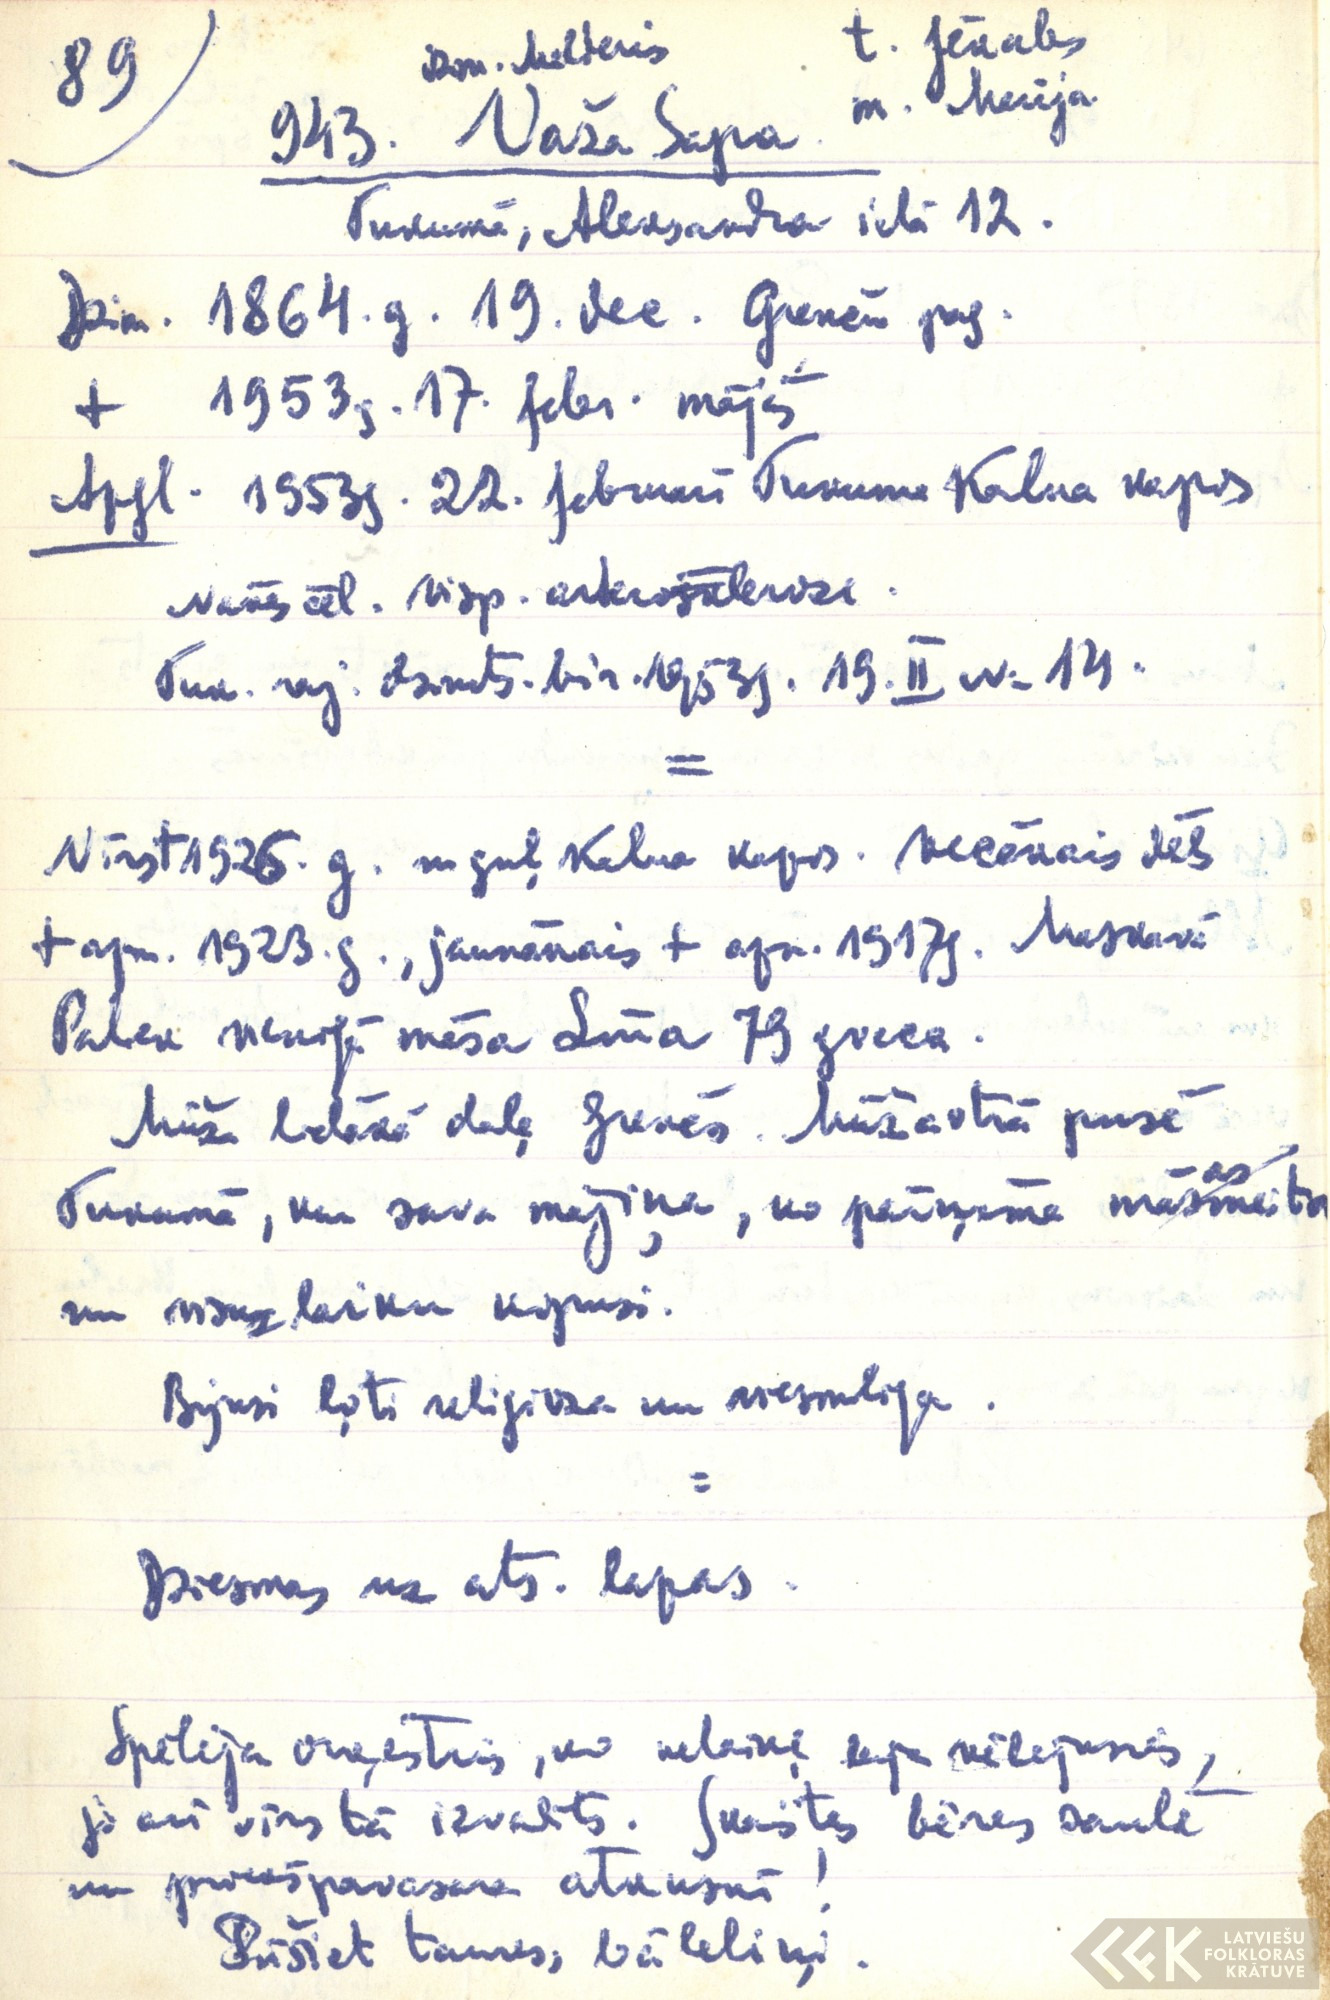 89
dzim. Melderis
t. Jēkabs
m. Marija
943. Važa Sapa.
Tukumā, Aleksandra ielā 12.
Dzim. 1864. g. 19. dec. Grenču pag.
+ 1953g. 17. febr. mājās
Apgl. 1953g. 22. februarī Tukuma Kalna kapos
Nāves cēl. Visp. arterioskleroze.
Tuk. raj. dzimts. bir. 1953g. 19. II No 14.
=
Vīrs + 1926. g. un guļ Kalna kapos. Vecākais dēls
+ apm. 1923. g., jaunākais + apm. 1917g. Maskavā
Paliek vienīgā māsa Līna 79 g veca.
Mūža lielāko daļu Grenčos. Mūža otrā pusē
Tukumā, kur sava mājiņa, ko pārņēma māsasmeita
un visu laiku kopusi.
Bijusi ļoti religioza un viesmīlīga.
=
Dziesmas uz ats. lapas.
Spēlēja orķestris, ko nelaiķe bija vēlējusies,
jo arī vīrs tā izvadīts. Skaistas bēres saulē
un priekšpavasara atkusnī!
Pūšiet taures, bāleliņi.
LATVIEŠU
FOLKLORAS
KRĀTUVE